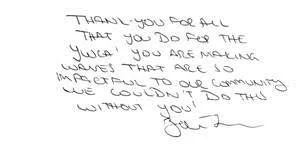 THANK-YOU FOR ALL
THAT YOU DO FOR THE
YWCA! YOU ARE MAKING
WAVES THAT ARE SO
IMPACTFUL TO OUR COMMUNITY
WE COULDN'T DO THIS
WITHOUT YOU!